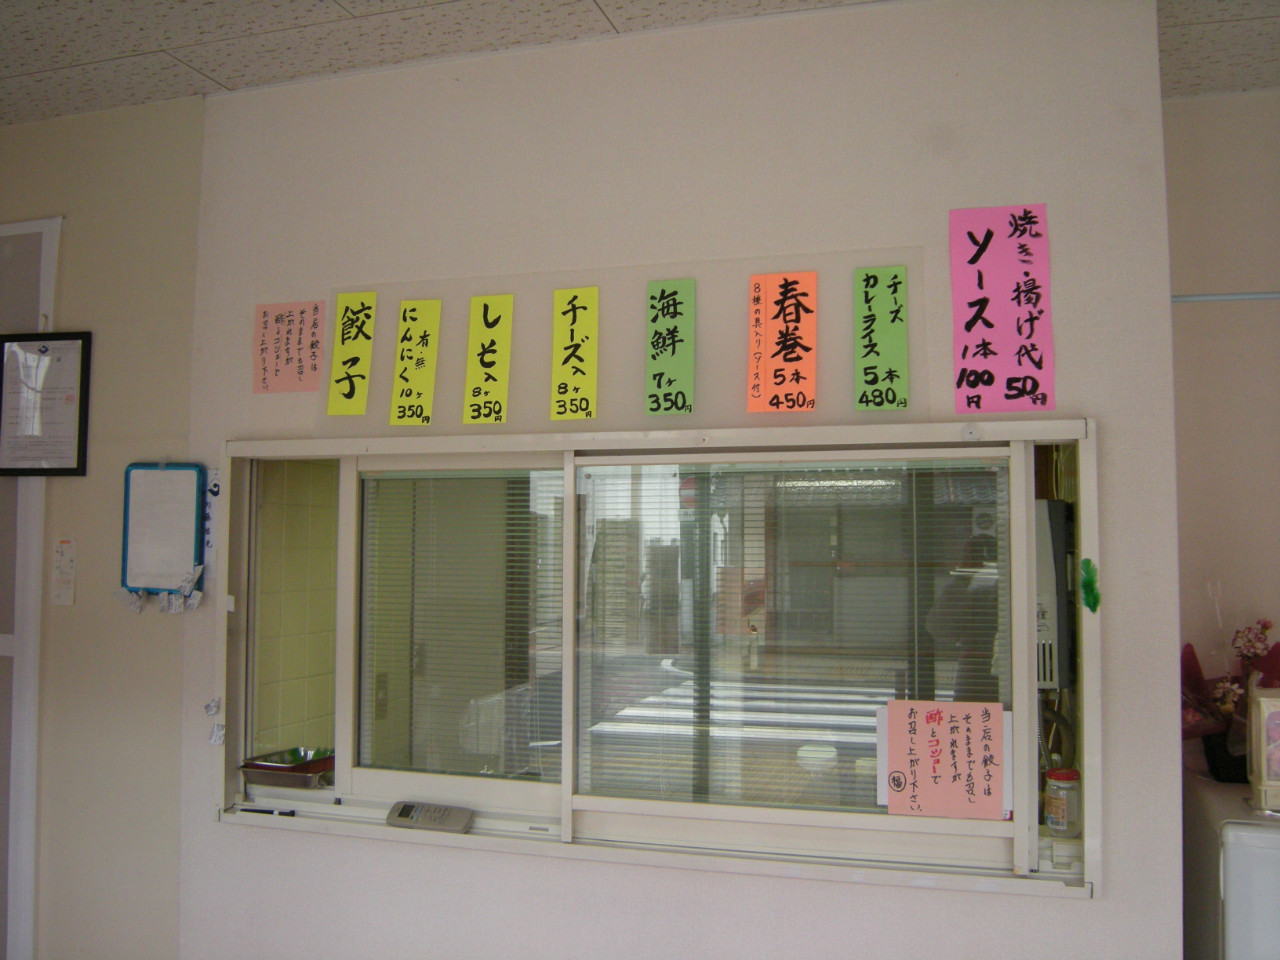 焼き・揚げ代
50円
ソース
1本
100円
チーズ
カレーライス
5本
480円
春巻
5本
450円
8種の具入り(ソース付)
海鮮
7ヶ
350円
チーズ入
8ヶ
350円
しそ入
8ヶ
350円
有・無
にんにく
10ヶ
350円
餃子
当店の餃子は
そのままでも召し
上がれますが
酢とコショーで
お召し上がり下さい。
当店の餃子は
そのままでも召し
上がれますが
酢とコショーで
お召し上がり下さい。